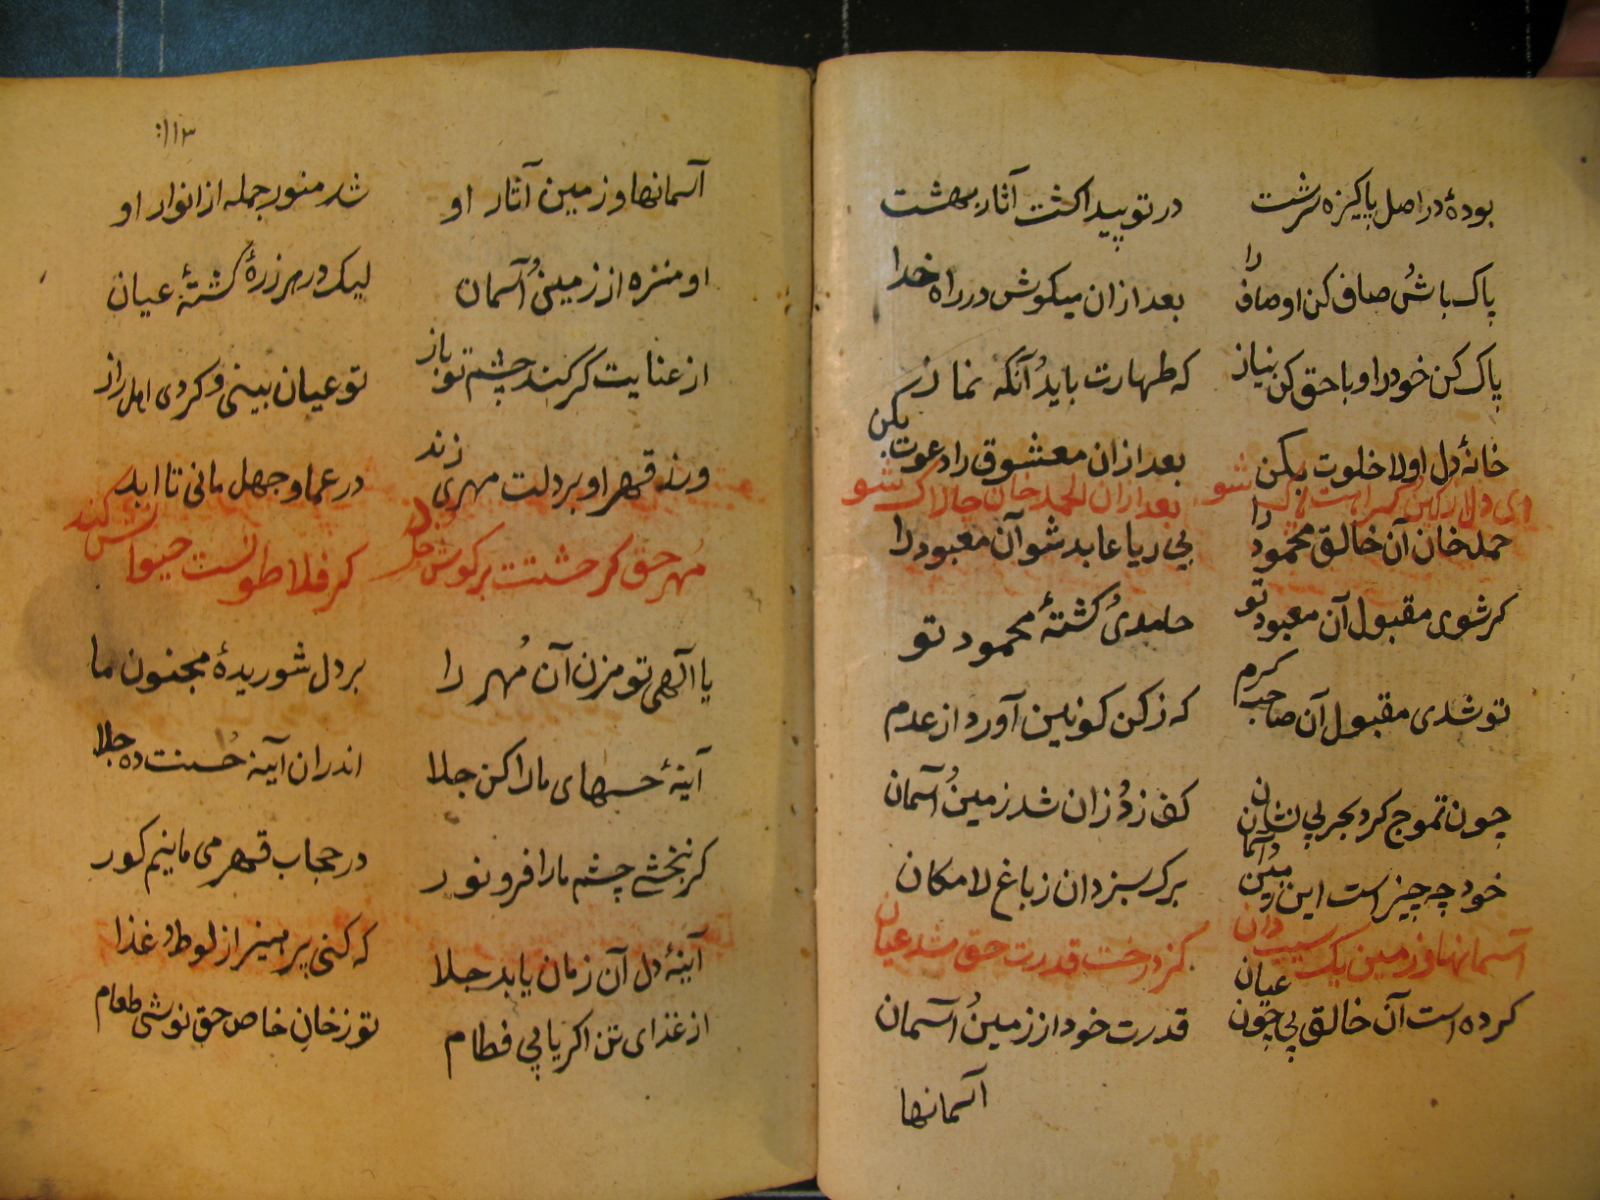 بودهٔ در اصل پاکیزه سرشت در تو پیدا کشت آثار بهشت
پاک باش و صاف کن اوصاف را بعد ازان میکوش در راه خدا
پاک کن خود را و با حق کن نیاز که طهارت باید آنکه نماز
خانهٔ دل اولا خلوت بکن بعد ازان معشوق را دعوت بکن
ای دلا زین پاک شو بعد ازان الحمد خان چالاک شو
حمد خان آن خالق محمود را بی ریا عابد شو آن معبود را
کر شوی مقبول آن معبود تو حامدی و کشتهٔ محمود تو
تو شدی مقبول آن صاحب کرم که ز کن کونین آورد از عدم
چون تموج کرد بحر بی نشان کف زد و زان شد زمین و آسمان
خود چه چیز است این زمین و آسمان برک سبز دان ز باغ لامکان
آسمانها و زمین یک سیب دان کز درخت قدرت حق شد عیان
کرده است آن خالق بی چون عیان قدرت خود از زمین و آسمان
آسمانها
۱۱۳
آسمانها و زمین آثار او شد منور جمله از انوار او
او منزه از زمین و آسمان لیک در هر زرهٔ کشتهٔ عیان
از عنایت کر کند چشم تو باز تو عیان بینی و کردی اهل راز
ورنه قهر او بر دلت مهری زند در عما و جهل مانی تا ابد
مهر حق کر حشتت بر کوش جان کر فلاطونست حیوانش کند
یا الهی تو مزن آن مهر را بر دل شوریدهٔ مجنون ما
آینهٔ حسهای ما را کن جلا اندران آینه حسنت ده جلا
کر نبخشی چشم ما را فر و نور در حجاب قهر می مانیم کور
آینهٔ دل آن زمان یابد جلا که کنی پرهیز از لوط و غذا
از غذای تن اکر یابی فطام تو ز خان خاص حق نوشی طعام